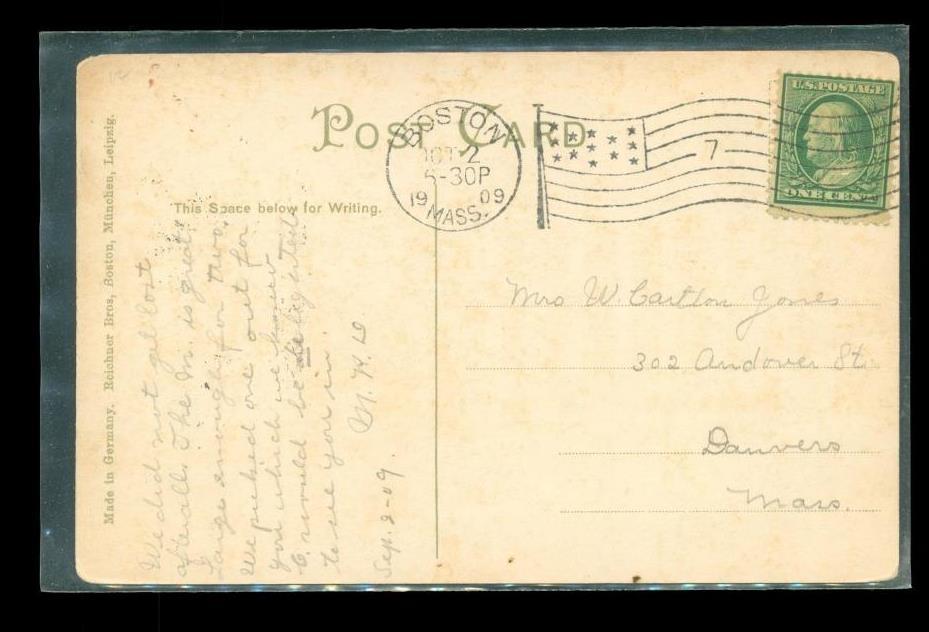 POST CARD
BOSTON
OCT 2
5-30P
19 09
MASS.
7
U.S. POSTAGE
ONE CENT
This Space below for Writing.
Made in Germany. Reichner Bros, Boston, München, Leipzig.
We did not get lost
after all. The M. is great
Large enough for two.
We picked one out for
you which we know
C. would be delighted
to see you in
M. H. D
Sep. 2-09.
Mrs W. Carlton Jones
302 Andover St.
Danvers
Mass.